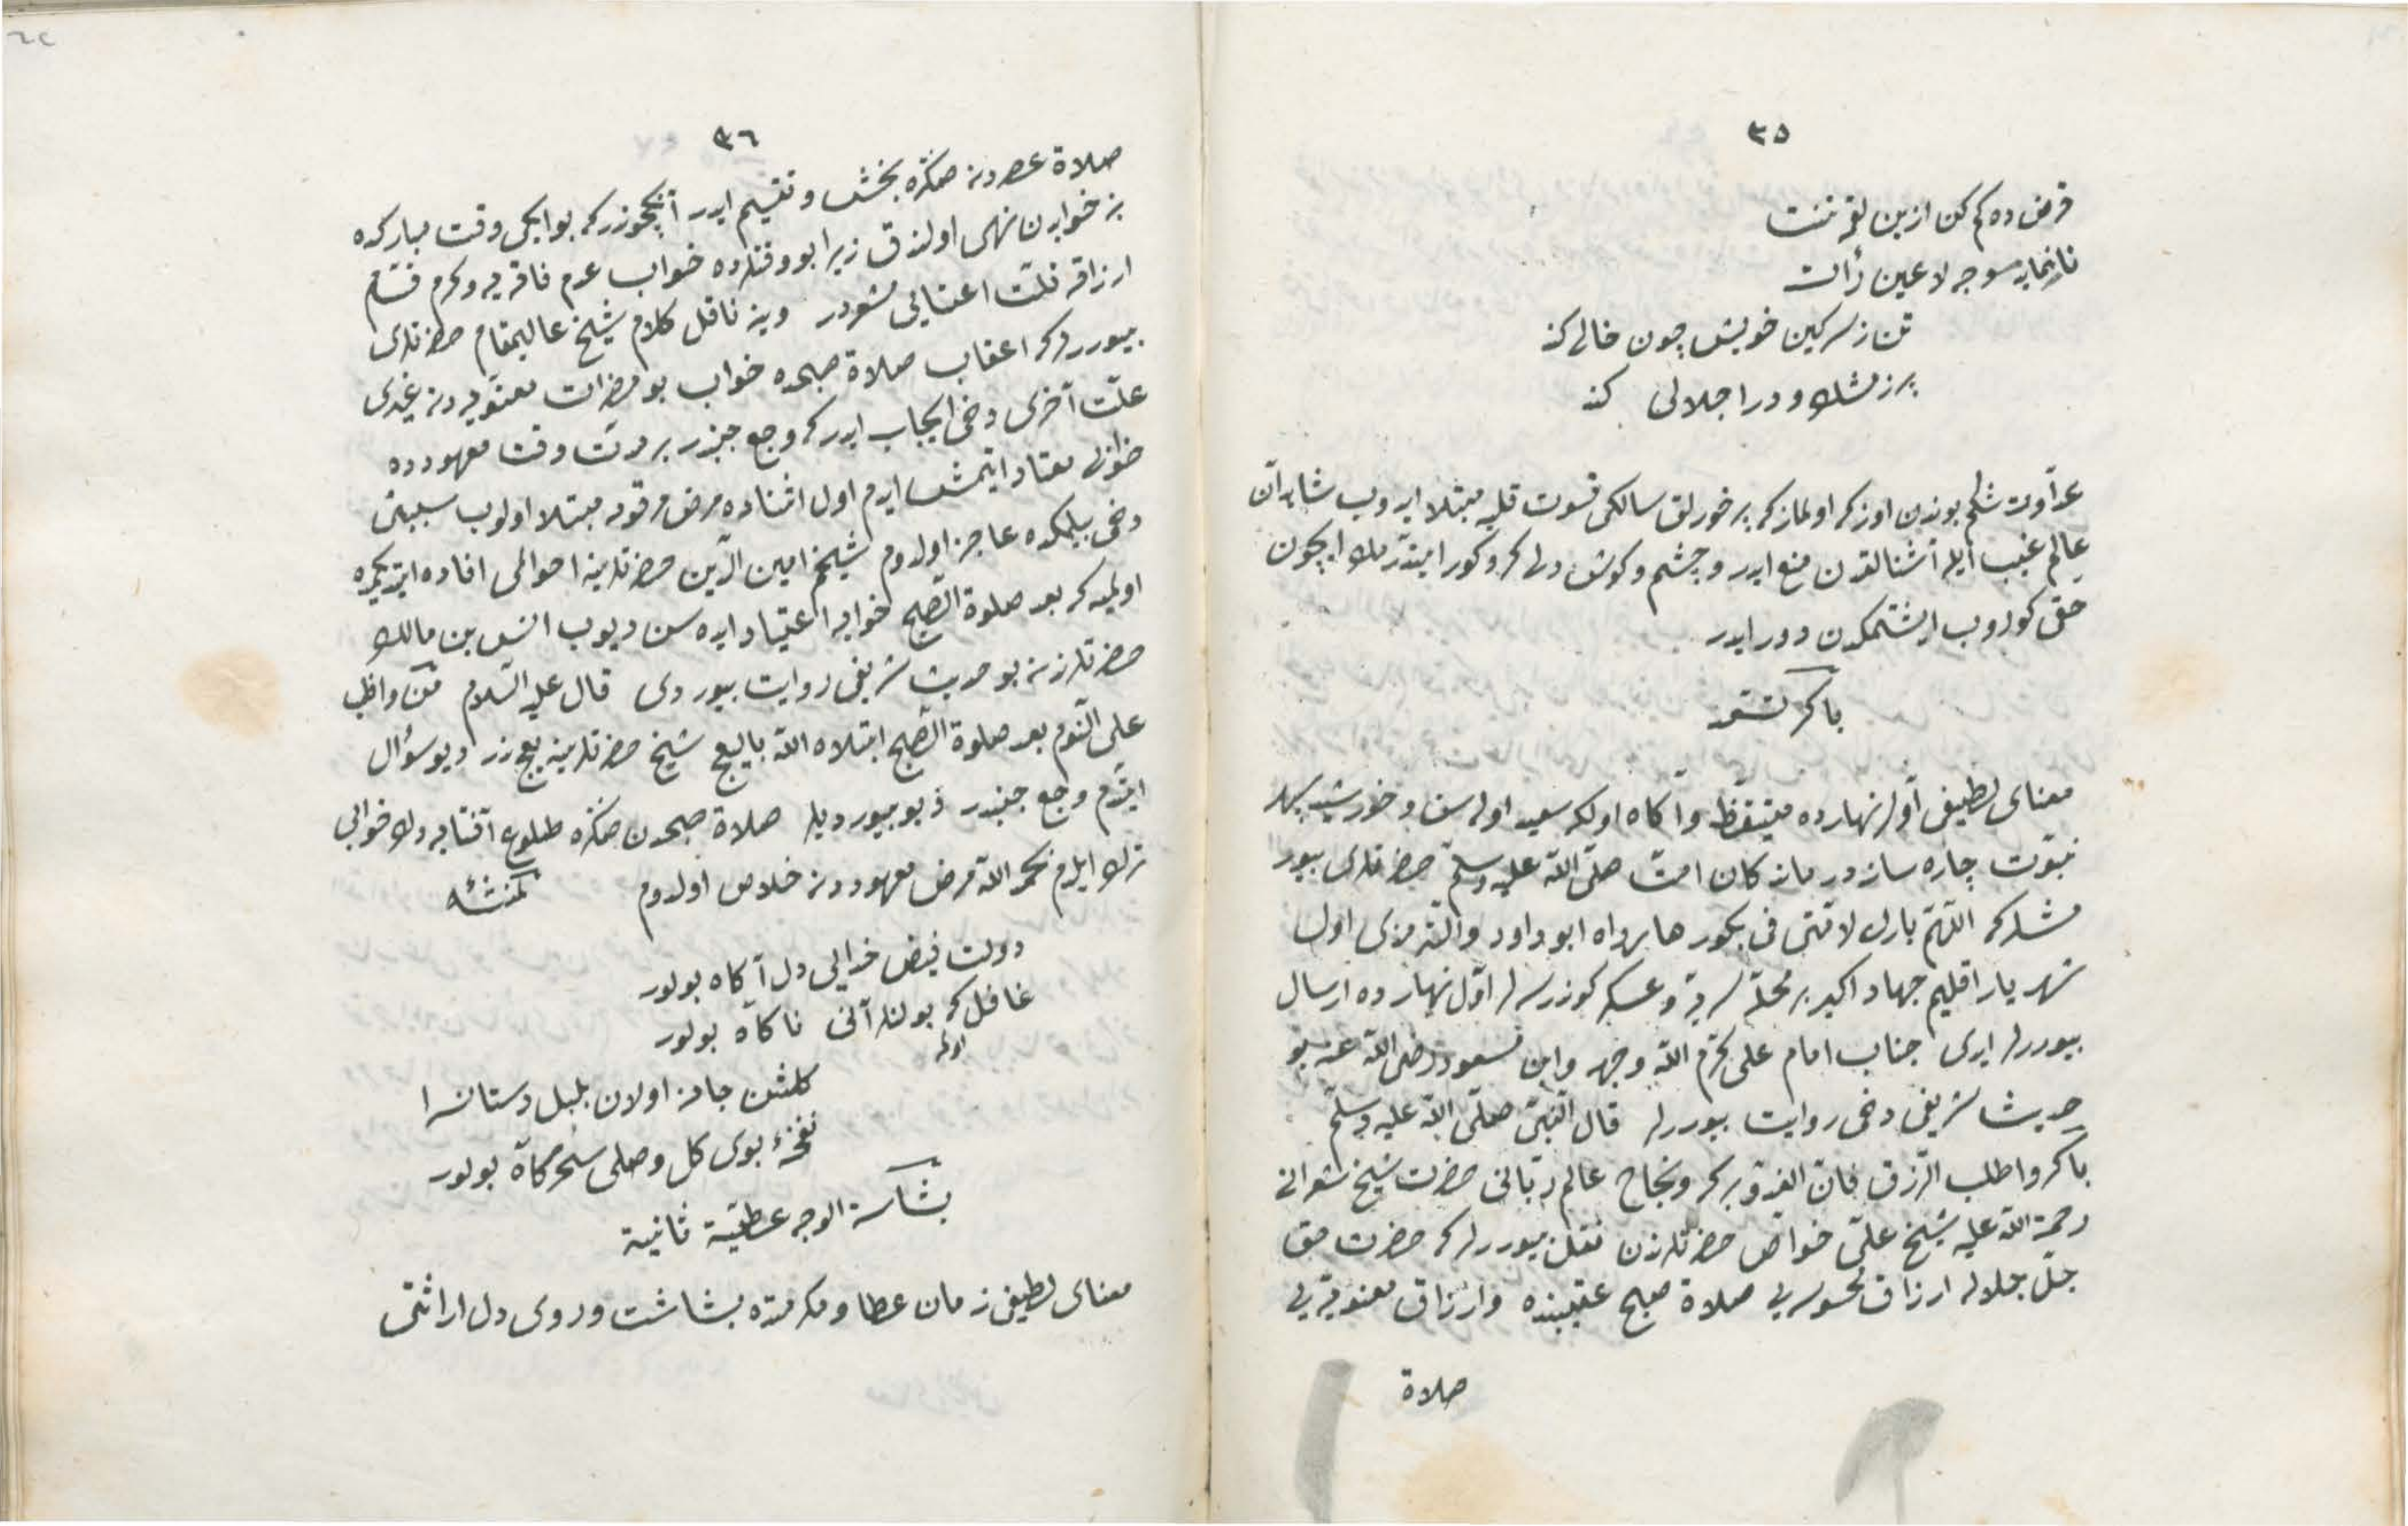 ٣٥
قرض ده كم كن ازين لقمه تنت
تا نمايد وجه لا عين رأت
تن ز سركين خويش چون خالى كند
پر ز مشك و در اجلالى كند
عداوت شكم بوندن اوزكه اولماز كه پر خورلق سالكى قسوت قلبه مبتلا ايدوب شاهدان
عالم غيب ايله آشنالقدن منع ايدر و چشم و كوش دلى كر و كور ايتدرمك ايچون
حقى كوروب ايشتمكدن دور ايدر
باكر تسعد
معناى لطيفى اول نهارده متيقظ و آكاه اول كه سعيد اوله سن و خورشيد سپهر
نبوت چاره ساز درماندكان امت صلى الله عليه وسلم حضرتلرى بيور
مشلر كه اللهم بارك لامتى فى بكورها رواه ابو داود والترمذى اول
شهريار اقليم جهاد اكبر بر محله سريه و عسكر كوندرسه لر اول نهارده ارسال
بيوررلر ايدى جناب امام على كرم الله وجهه وابن مسعود رضى الله عنه بو
حديث شريفى دخى روايت بيوررلر قال النبى صلى الله عليه وسلم
باكروا طلب الرزق فان الغدو بركة ونجاح عالم ربانى حضرت شيخ شعرانى
رحمة الله عليه شيخ على خواص حضرتلرندن نقل بيوررلر كه حضرت حق
جل جلاله ارزاق محسوسه يى صلاة صبح عقبنده و ارزاق معنويه يى
صلاة
٣٦
صلاة عصردن صكره بخش و تقسيم ايدر آنكچوندر كه بو ايكى وقت مباركده
بز خوابدن نهى اولندق زيرا بو وقتلرده خواب عدم فاقه يه و كرم قسام
ارزاقه قلت اعتنايى مشعردر وينه ناقل كلام شيخ عاليمقام حضرتلرى
بيوررلر كه اعقاب صلاة صبحده خواب بو مضرات معنويه دن غيرى
علت آخرى دخى ايجاب ايدر كه وجع جنبدر بر مدت وقت معهودده
خوابى معتاد ايتمش ايدم اول اثناده مرض مرقومه مبتلا اولوب سببنى
دخى بيلمكده عاجز اولدم شيخم امين الدين حضرتلرينه احوالى افاده ايتديكمده
اولميه كه بعد صلوة الصبح خوابه اعتياد ايده سن ديوب انس بن مالك
حضرتلرندن بو حديث شريفى روايت بيوردى قال عليه السلام من واظب
على النوم بعد صلوة الصبح ابتلاه الله بالبعج شيخ حضرتلرينه بعج ندر ديو سؤال
ايتدم وجع جنبدر ديو بيورديلر صلاة صبحدن صكره طلوع آفتابه دك خوابى
ترك ايلدم بحمد الله مرض معهوددن خلاص اولدم لمنشئه
دولت فيض خدايى دل آكاه بولور
غافل كه بولنه آنى ناكاه بولور
اوله
كلشن جانده اولان بلبل دستانسرا
نفخهء بوى كل وصلى سحركاه بولور
بشاشة الوجه عطية ثانية
معناى لطيفى زمان عطا و مكرمتده بشاشت و روى دل اراشى